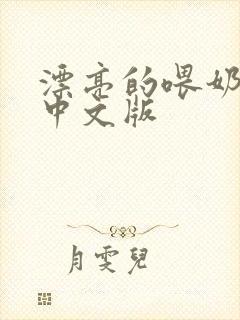 漂亮的喂奶
中文版
月雯兒